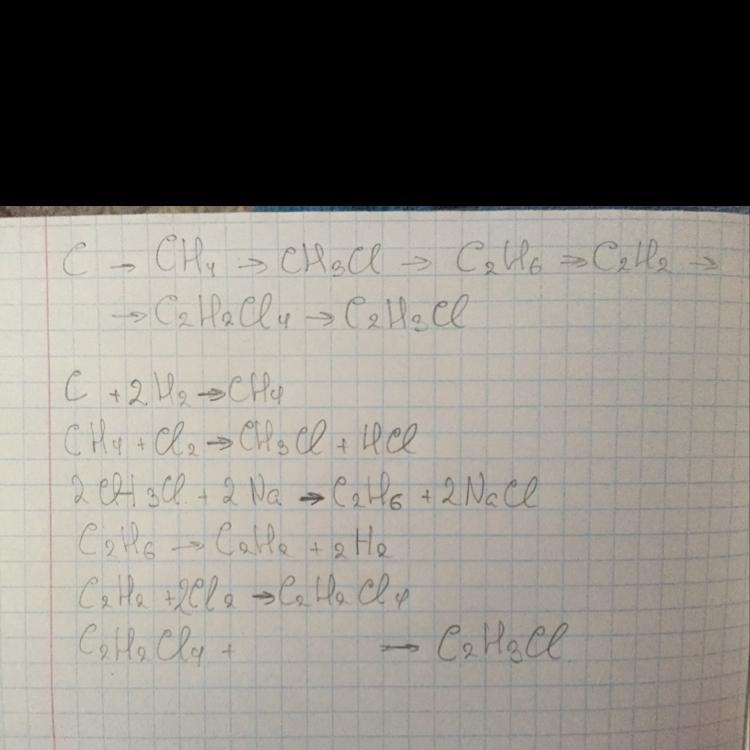 C → CH₄ → CH₃Cl → C₂H₆ → C₂H₂ →
→ C₂H₂Cl₄ → C₂H₃Cl
C + 2H₂ → CH₄
CH₄ + Cl₂ → CH₃Cl + HCl
2CH₃Cl + 2Na → C₂H₆ + 2NaCl
C₂H₆ → C₂H₂ + 2H₂
C₂H₂ + 2Cl₂ → C₂H₂Cl₄
C₂H₂Cl₄ + → C₂H₃Cl